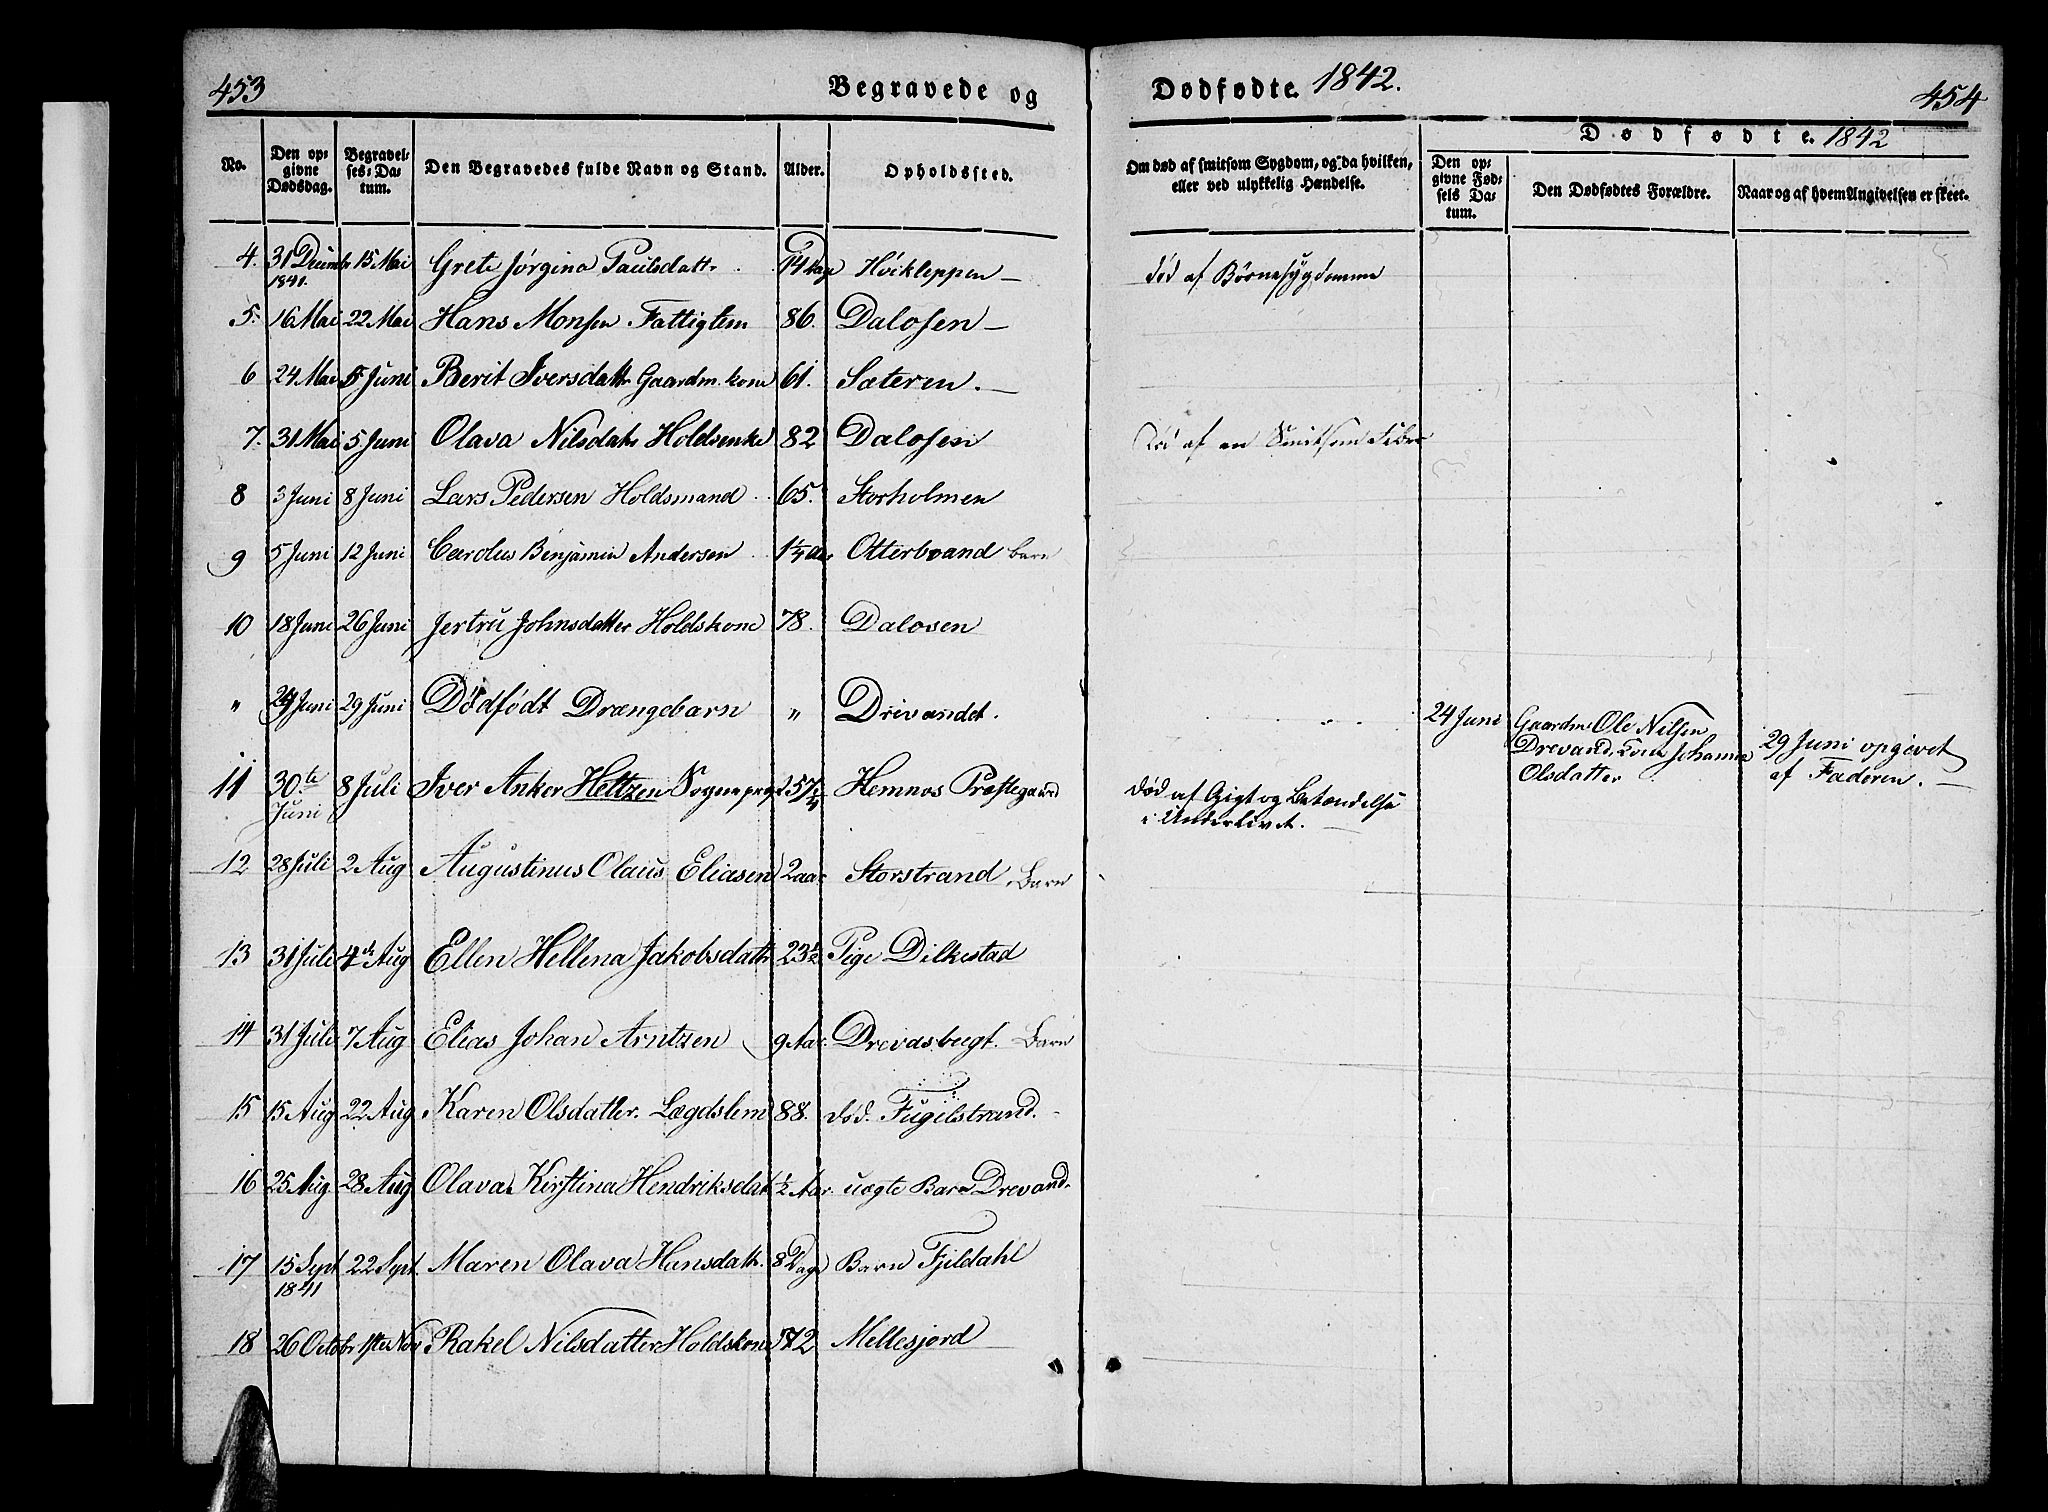 453
Begravede og
No.
Den op-
givne
Dødsdag.
Begravel-
ses-Da-
tum.
Den Begravedes fulde Navn og Stand.
Alder.
Opholdssted.
4. 31 Decmbr 15 Mai Grete Jørgina Paulsdatr. 14 Dage Høikleppen
1841.
5. 16 Mai 22 Mai Hans Monsen Fattiglem 86. Dalosen
6 24 Mai 5 Juni Berit Iversdattr Gaardm. kone 61. Sæteren.
7. 31 Mai 5 Juni Olava Nilsdatr Holdsenke 82 Dalosen
8 3 Juni 8 Juni Lars Pedersen Holdsmand 65. Storholmen
9 5 Juni 12 Juni Carolus Benjamin Andersen Otterbrand barn
10 18 Juni 26 Juni Jertru Johnsdatter Holdskone 78. Dalosen
" 24 Juni 29 Juni Dödfödt Drængebarn " Drivandet.
11 30te 8 Juli Iver Anker Heltzen Hemnæs Præstegaard
Juni
12 28 Juli 2 Aug Augustinus Olaus Eliasen 2 aar Storstrand Barn
13 31 Juli 4de Aug Ellen Hellena Jakobsdattr 23½ Pige Dilkestad
14 31 Juli 7 Aug Elias Johan Arntzen 9 Aar. Drevasbugt. Barn
15 15 Aug 22 Aug Karen Olsdatter. Lægdslem 88. død. Fugelstrand.
16 25 Aug 28 Aug Olava Kirstina Hendriksdat ½ Aar. uægte Barn Drevand.
17 15 Sept 22 Sept. Maren Olava Hansdatr. 8 Dage Barn Fjeldahl
1841
18 26 Octobr 1ste Nov. Rakel Nilsdatter Holdskone 72 Mellesjord
Dødfødte. 1842.
454
Dødfødte. 1842
Om død af smitsom Sygdom, og da hvilken,
eller ved ulykkelig Hændelse.
Den op-
givne Fød-
sels Da-
tum.
Den Dødfødtes Forældre.
Naar og af hvem Angivelsen er skeet.
død af Børnesygdomme
Død af en Smitsom Feber
24 Juni
Gaardm. Ole Nilsen
Drevand, Kone Johanna
Olsdatter
29 Juni opgivet
af Faderen.
død af Gigt og Betændelse
i Underlivet.